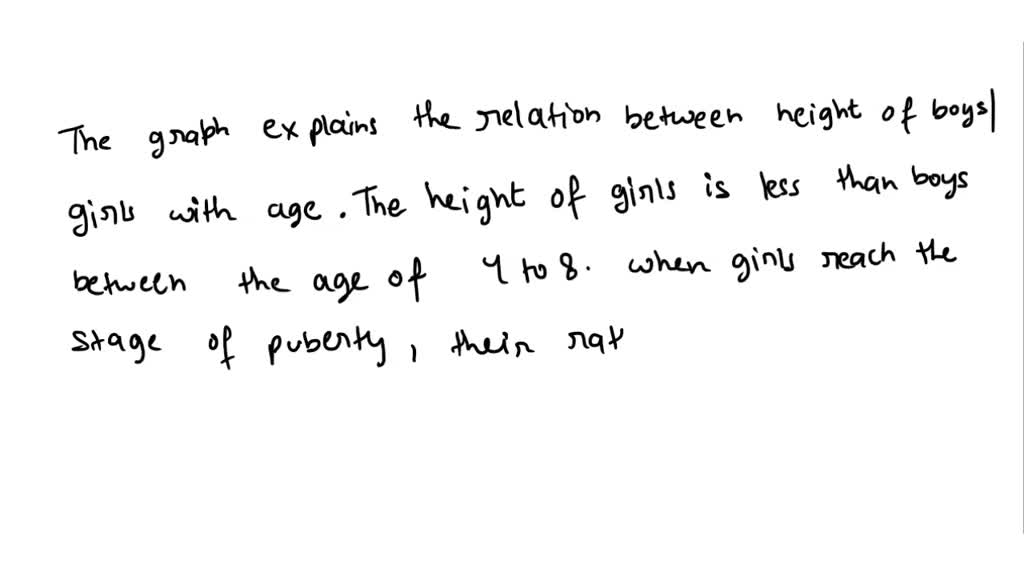 The graph explains the relation between height of boys/
girls with age. The height of girls is less than boys
between the age of 4 to 8. when girls reach the
stage of puberty, their rat